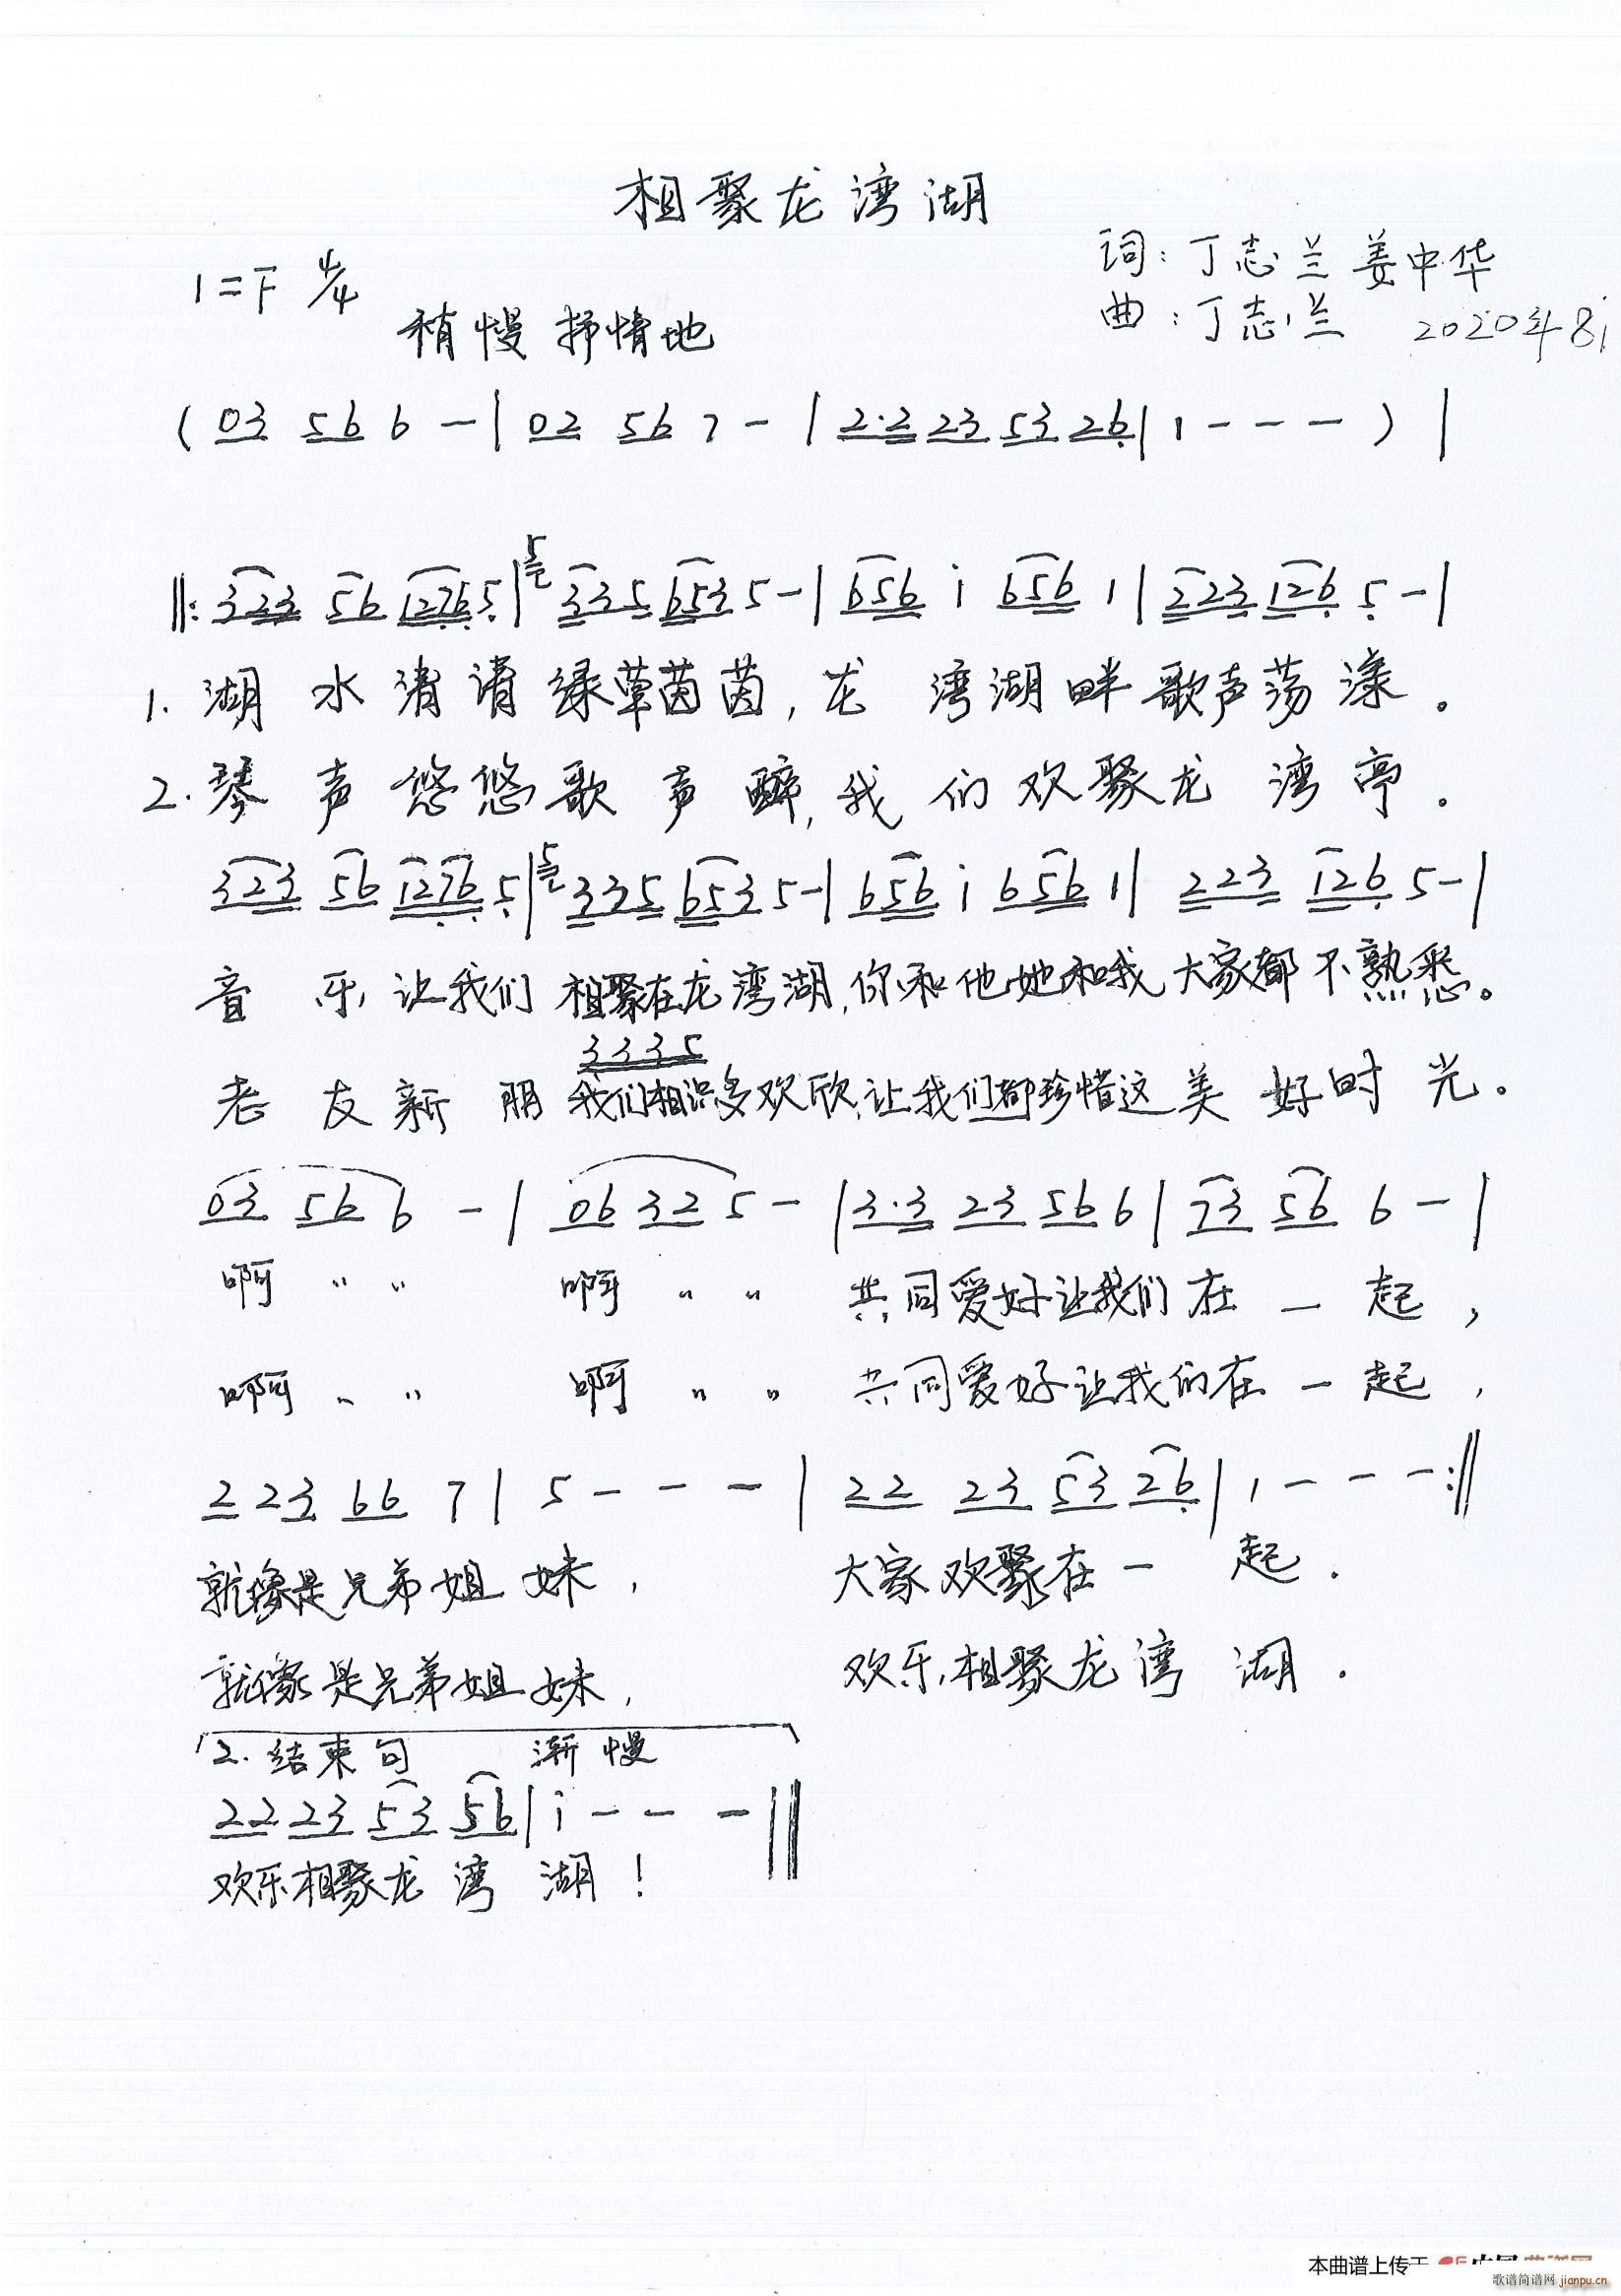 相聚龙湾湖
词：丁志兰 姜中华
1=F 4/4
曲：丁志兰 2020年8
稍慢 抒情地
( 03 56 6 - | 02 56 7 - | 2·2 23 53 26 | 1 - - - ) |
5
‖: 323 56 1276 5 | 335 653 5 - | 656 i 656 1 | 223 126 5 - |
1. 湖 水 清 清 绿草茵茵，龙 湾湖畔歌声荡漾。
2. 琴 声 悠悠歌 声 醉，我 们欢聚龙 湾亭。
5
323 56 1276 5 | 335 653 5 - | 656 i 656 1 | 223 126 5 - |
音 乐 让我们 相聚在龙湾湖，你和他她和我 大家都不熟悉。
3335
老 友 新 朋 我们相识多欢欣，让我们都珍惜这美 好时 光。
03 56 6 - | 06 32 5 - | 3·3 23 56 6 | 23 56 6 - |
啊 〃 〃 啊 〃 〃 共同爱好让我们 在 一 起，
啊 〃 〃 啊 〃 〃 共同爱好让我们在 一 起，
2 23 66 7 | 5 - - - | 22 23 53 26 | 1 - - - :‖
就像是兄弟姐 妹， 大家欢聚在一 起．
就像是兄弟姐 妹， 欢乐相聚龙湾 湖．
2. 结束句 渐慢
22 23 53 56 | i - - - ‖
欢乐相聚龙 湾 湖！
本曲谱上传于
歌谱简谱网 jianpu.cn